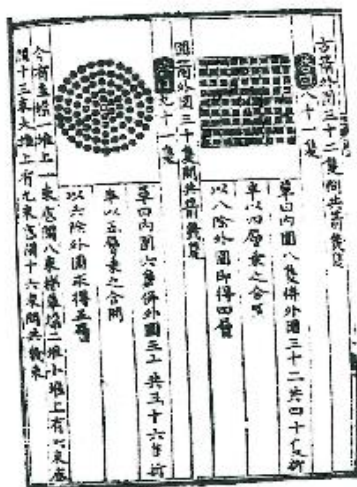 箭外圍三十二隻問共箭幾隻
八十一隻
草曰內圍八隻併外圍三十二共四十隻折
半以四層乘之合問
以八除外圍即得四層
圓箭外圍三十隻問共箭幾隻
九十一隻
草曰內圍六隻併外圍三十共三十六隻折
半以五層乘之合問
以六除外圍亦得五層
今有堆上一束底闊八束第二堆小堆上有六束底
闊十三束大堆上有九束底闊十六束問共幾束